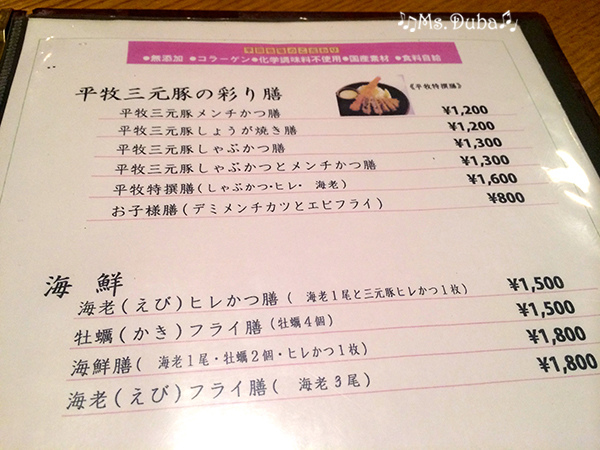 ♫Ms.Duba♫
●無添加 ●コラーゲン ●化学調味料不使用 ●国産素材 ●食料自給
平牧三元豚の彩り膳
《平牧特撰膳》
平牧三元豚メンチかつ膳 ¥1,200
平牧三元豚しょうが焼き膳 ¥1,200
平牧三元豚しゃぶかつ膳 ¥1,300
平牧三元豚しゃぶかつとメンチかつ膳 ¥1,300
平牧特撰膳(しゃぶかつ・ヒレ・ 海老) ¥1,600
お子様膳(デミメンチカツとエビフライ) ¥800
海鮮
海老(えび)ヒレかつ膳( 海老1尾と三元豚ヒレかつ1枚) ¥1,500
牡蠣(かき)フライ膳(牡蠣4個) ¥1,500
海鮮膳( 海老1尾・牡蠣2個・ヒレかつ1枚) ¥1,800
海老(えび)フライ膳( 海老3尾) ¥1,800